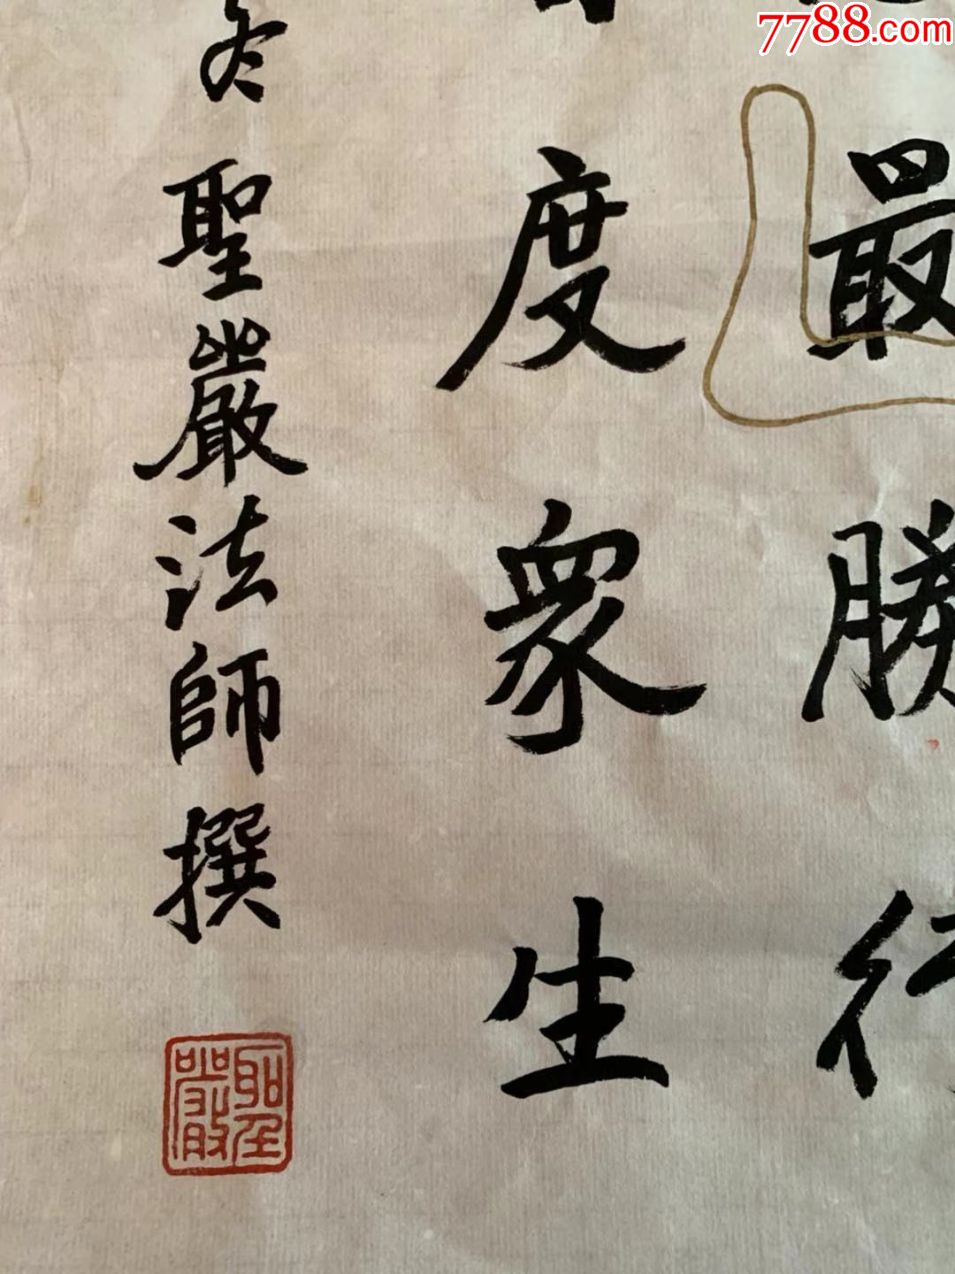 7788.com
最勝行
度眾生
冬聖嚴法師撰
聖嚴